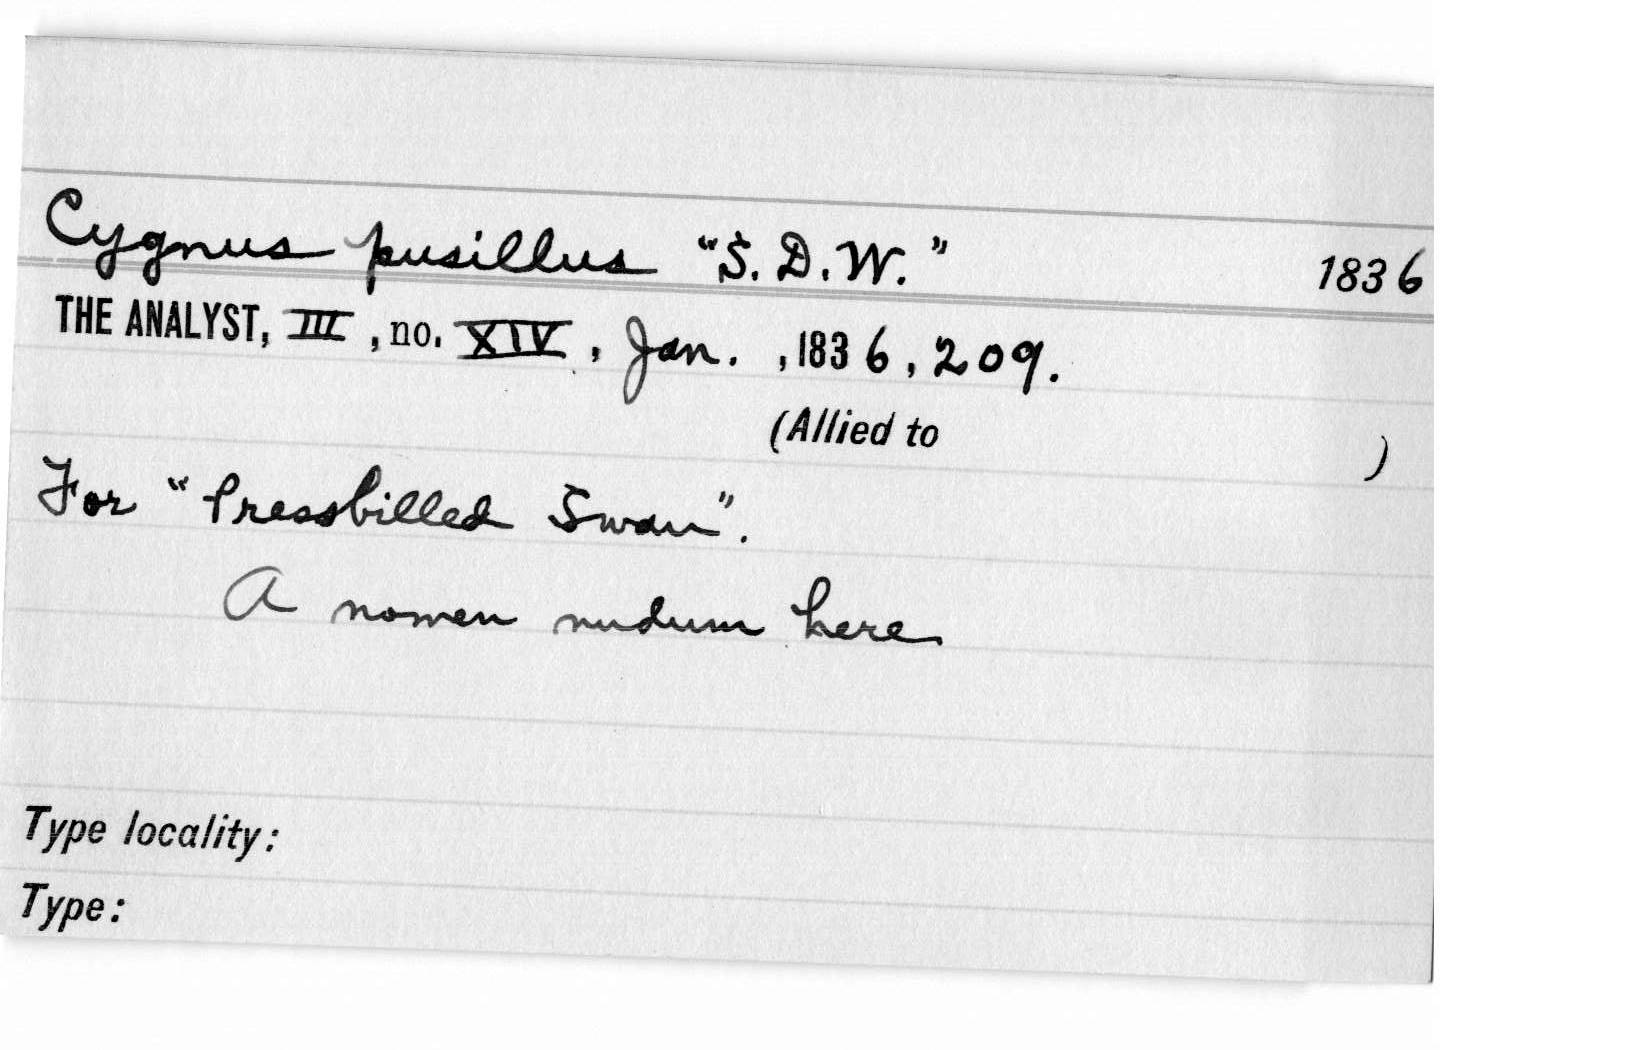 Cygnus pusillus "S. D. W." 1836
THE ANALYST, III, no. XIV, Jan. , 1836, 209.
(Allied to )
For "Pressbilled Swan".
A nomen nudum here
Type locality:
Type: